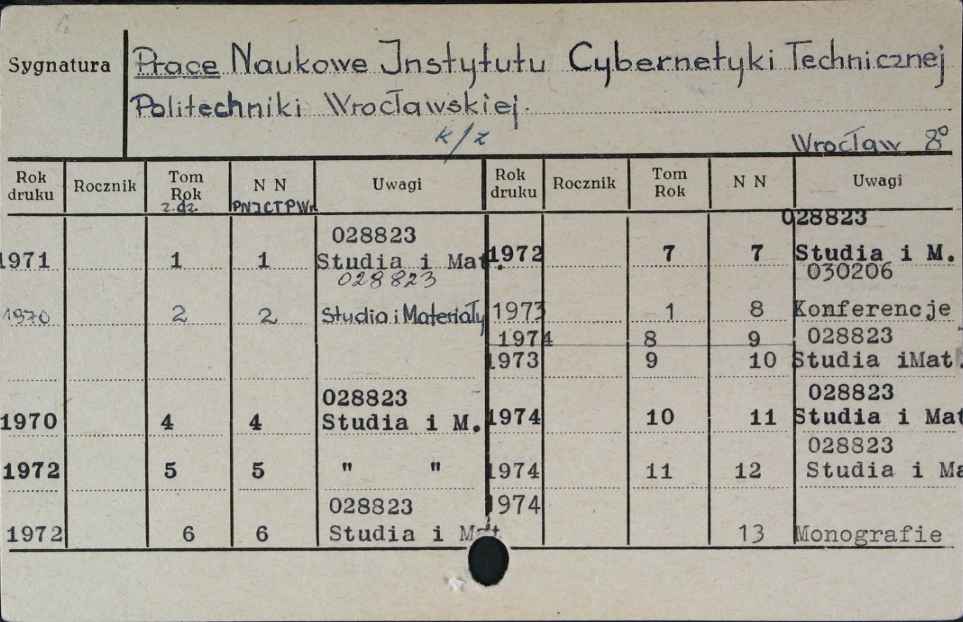 Sygnatura Prace Naukowe Instytutu Cybernetyki Technicznej
Politechniki Wrocławskiej.
k/z
Wrocław 8°
Rok druku Rocznik Tom Rok z.dz. N N PNICTPWr Uwagi
028823
1971 1 1 Studia i Mat.
028823
1970 2 2 Studia i Materiały
028823
1970 4 4 Studia i M.
1972 5 5 " "
028823
1972 6 6 Studia i Mat
Rok druku Rocznik Tom Rok N N Uwagi
028823
1972 7 7 Studia i M.
030206
1973 1 8 Konferencje
1974 8 9 028823
1973 9 10 Studia iMat.
028823
1974 10 11 Studia i Mat
028823
1974 11 12 Studia i Ma
1974
13 Monografie